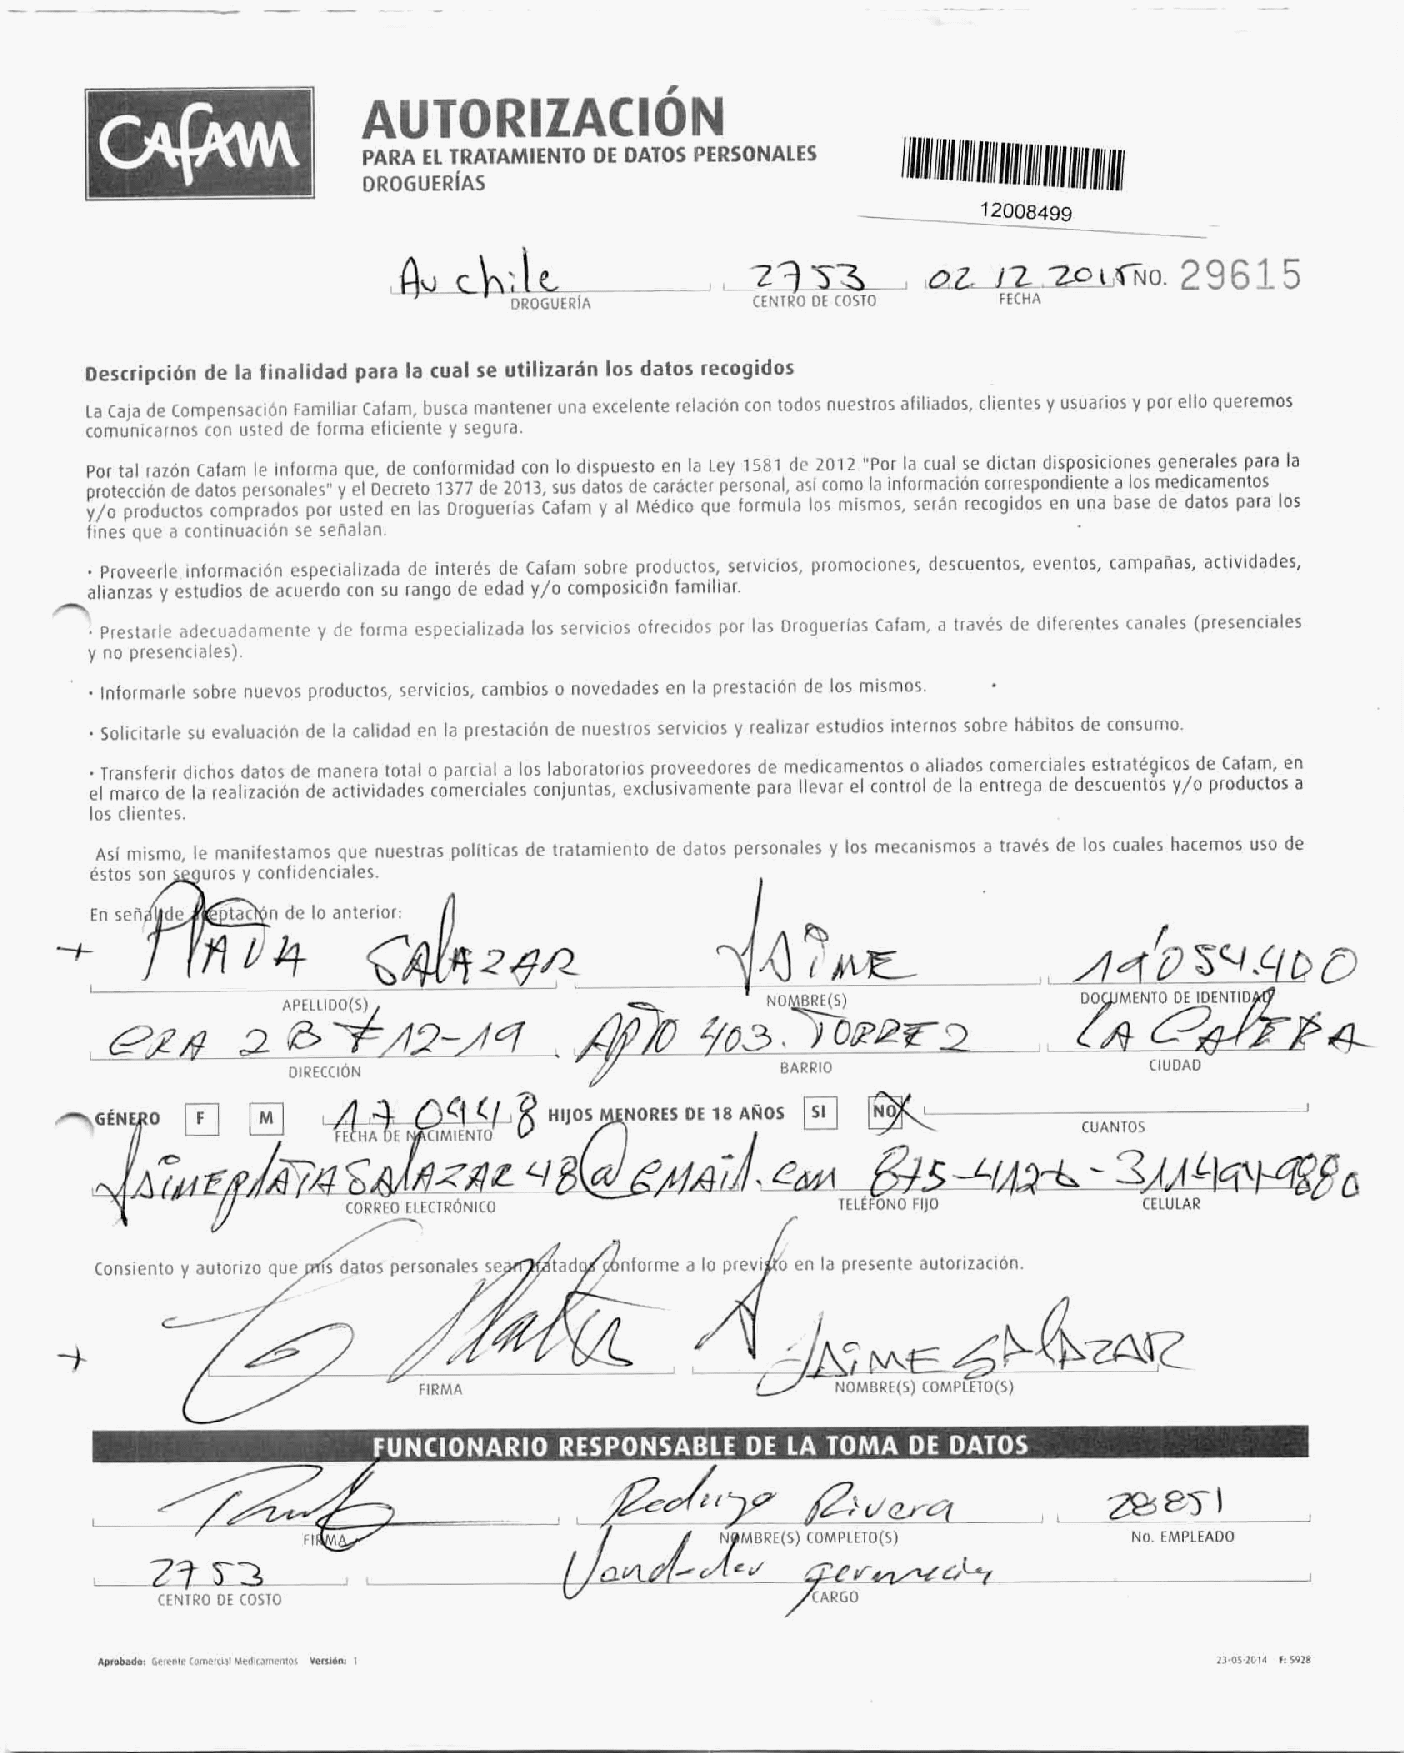 CAFAM
AUTORIZACIÓN
PARA EL TRATAMIENTO DE DATOS PERSONALES
DROGUERÍAS
12008499
Av chile 2753 02 12 2015 NO. 29615
DROGUERÍA CENTRO DE COSTO FECHA
Descripción de la finalidad para la cual se utilizarán los datos recogidos
La Caja de Compensación Familiar Cafam, busca mantener una excelente relación con todos nuestros afiliados, clientes y usuarios y por ello queremos
comunicarnos con usted de forma eficiente y segura.
Por tal razón Cafam le informa que, de conformidad con lo dispuesto en la Ley 1581 de 2012 "Por la cual se dictan disposiciones generales para la
protección de datos personales" y el Decreto 1377 de 2013, sus datos de carácter personal, así como la información correspondiente a los medicamentos
y/o productos comprados por usted en las Droguerías Cafam y al Médico que formula los mismos, serán recogidos en una base de datos para los
fines que a continuación se señalan.
· Proveerle información especializada de interés de Cafam sobre productos, servicios, promociones, descuentos, eventos, campañas, actividades,
alianzas y estudios de acuerdo con su rango de edad y/o composición familiar.
· Prestarle adecuadamente y de forma especializada los servicios ofrecidos por las Droguerías Cafam, a través de diferentes canales (presenciales
y no presenciales).
· Informarle sobre nuevos productos, servicios, cambios o novedades en la prestación de los mismos.
· Solicitarle su evaluación de la calidad en la prestación de nuestros servicios y realizar estudios internos sobre hábitos de consumo.
· Transferir dichos datos de manera total o parcial a los laboratorios proveedores de medicamentos o aliados comerciales estratégicos de Cafam, en
el marco de la realización de actividades comerciales conjuntas, exclusivamente para llevar el control de la entrega de descuentos y/o productos a
los clientes.
Así mismo, le manifestamos que nuestras políticas de tratamiento de datos personales y los mecanismos a través de los cuales hacemos uso de
éstos son seguros y confidenciales.
En señal de aceptación de lo anterior:
SALAZAR JAIME 19'054.400
APELLIDO(S) NOMBRE(S) DOCUMENTO DE IDENTIDAD
CRA 2B # 12-19 APTO 403. TORRE 2 LA CALERA
DIRECCIÓN BARRIO CIUDAD
GÉNERO F M 170948 HIJOS MENORES DE 18 AÑOS SI NO
FECHA DE NACIMIENTO CUANTOS
JAIMEPLATASALAZAR48@GMAIL.com 875-4126 - 311494-9880
CORREO ELECTRÓNICO TELÉFONO FIJO CELULAR
Consiento y autorizo que mis datos personales sean tratados conforme a lo previsto en la presente autorización.
JAIME SALAZAR
FIRMA NOMBRE(S) COMPLETO(S)
FUNCIONARIO RESPONSABLE DE LA TOMA DE DATOS
Rivera 28851
FIRMA NOMBRE(S) COMPLETO(S) No. EMPLEADO
2753
CENTRO DE COSTO CARGO
Aprobado: Gerente Comercial Medicamentos Versión: 1 23-05-2014 F: 5928